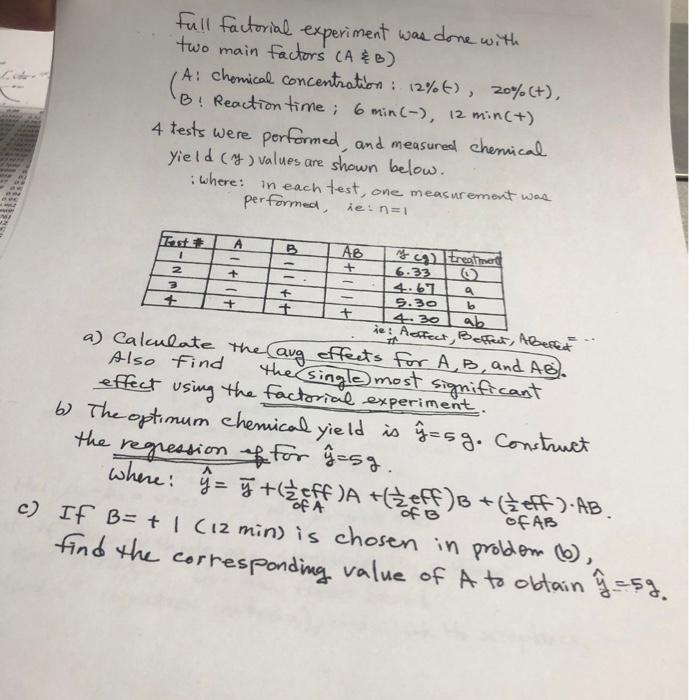 Full factorial experiment was done with
two main factors (A & B)
(A: Chemical concentration : 12% (-), 20% (+),
(B: Reaction time ; 6 min (-), 12 min (+)
4 tests were performed, and measured chemical
yield (y) values are shown below.
: where: in each test, one measurement was
performed, ie: n=1
Test # A B AB y (g) treatment
1 - - + 6.33 (1)
2 + - - 4.67 a
3 - + - 5.30 b
4 + + + 4.30 ab
ie: Aeffect, Beffect, ABeffect = ..
a) Calculate the avg effects for A, B, and AB.
Also find the single most significant
effect using the factorial experiment.
b) The optimum chemical yield is ŷ=5g. Construct
the regression eq for ŷ=5g.
where: ŷ = ȳ + (½ eff of A)A + (½ eff of B)B + (½ eff of AB)·AB.
c) If B = +1 (12 min) is chosen in problem (b),
find the corresponding value of A to obtain ŷ=5g.